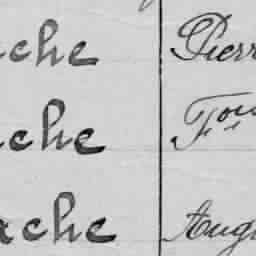 che Pierr
che Fou
ache Aug